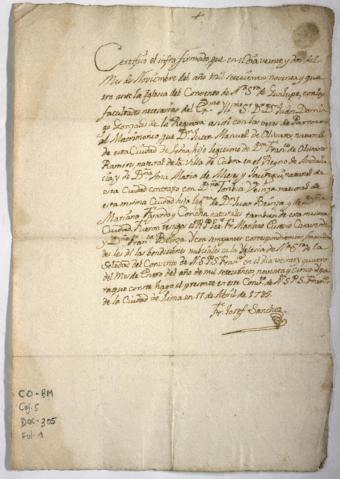 Certifico el infra firmado que en el dia veinte y dos del
Mes de Noviembre del año mil setecientos noventa y qua
tro ante la Iglesia del Convento de Nª Sª de Gualupe, con las
facultades necesarias del Domin
go Gonzales de la Reguera asisti con las veces de Parroco
al Matrimonio que Dn Juan Manuel de Olivares natural
de esta Ciudad de Lima hijo legitimo de Dn Franco de Olivares
Ramirez natural de la Villa de Cabra en el Reyno de Andalu
cia, y de Dña Ana Maria de natural de
esta Ciudad contrajo con Dña natural de
esta misma Ciudad hija legma de Dn Juan y de
Mariana Fajardo y Concha naturales tambien de esta misma
Ciudad. fueron testigos el Fr. Mariano
y Dña Franca con semejantes correspondientes facultа
des les di las bendiciones nupciales en la Iglesia de Nª Sª de la
Soledad del Convento de N. P. S. Franco en el dia veinte y quatro
del Mes de Enero del año de mil setecientos noventa y cinco. Y pa
ra que conste hago el presente en este Convto de N. P. S. Franco
de la Ciudad de Lima en 11 de Abril de 1795.
Fr. Josef Sanchez
CO-BM
Caj. 5
DOC-305
Fol-1